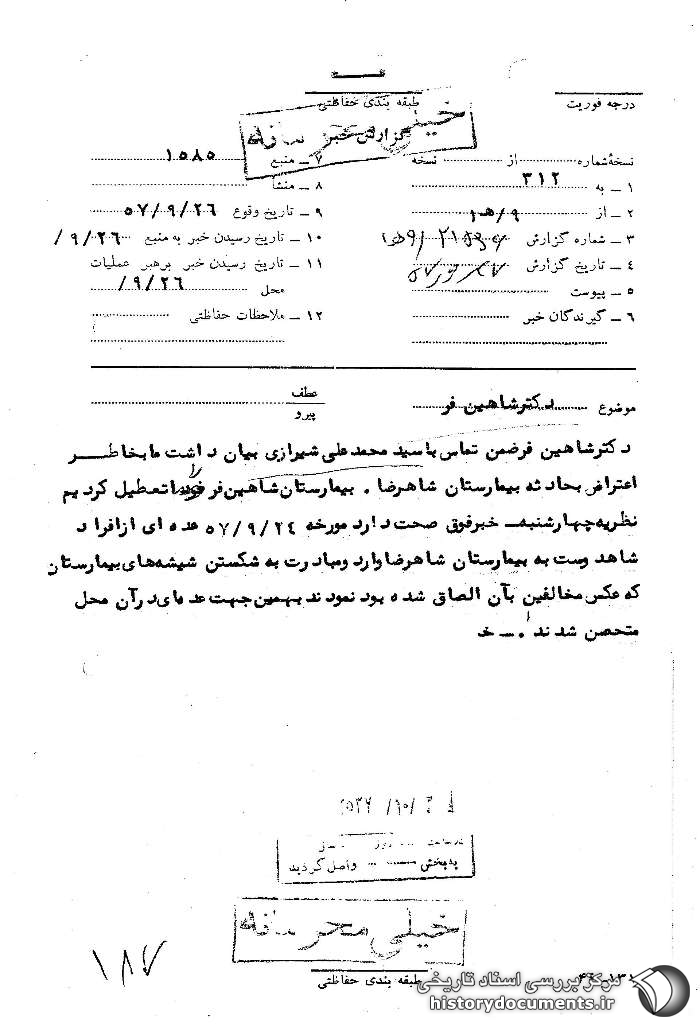 درجه فوریت
طبقه بندی حفاظتی
خیلی محرمانه
گزارش خبر
نسخهٔ شماره از نسخه
۷ ــ منبع ۱۵۸۵
۱ ــ به ۳۱۲
۸ ــ منشأ
۲ ــ از ۹/هـ۱
۹ ــ تاریخ وقوع ۵۷/۹/۲۶
۳ ــ شماره گزارش
۱۰ ــ تاریخ رسیدن خبر به منبع ۹/۲۶/
۴ ــ تاریخ گزارش
۱۱ ــ تاریخ رسیدن خبر برهبر عملیات
محل ۹/۲۶/
۵ ــ پیوست
۶ ــ گیرندگان خبر
۱۲ ــ ملاحظات حفاظتی
موضوع دکترشاهین فر
عطف
پیرو
دکترشاهین فرضمن تماس با سید محمدعلی شیرازی بیان داشت ما بخاطر
اعتراض بحادثه بیمارستان شاهرضا . بیمارستان شاهین فر خود را تعطیل کردیم
نظریه چهارشنبه ــ خبرفوق صحت دارد مورخه ۵۷/۹/۲۴ عده ای از افراد
شاهدوست به بیمارستان شاهرضا وارد ومبادرت به شکستن شیشه های بیمارستان
که عکس مخالفین بآن الصاق شده بود نمودند بهمین جهت عده ای در آن محل
متحصن شدند . ــ خ
بخش
واصل گردید
خیلی محرمانه
طبقه بندی حفاظتی
۱۸۷
مرکز بررسی اسناد تاریخی
historydocuments.ir